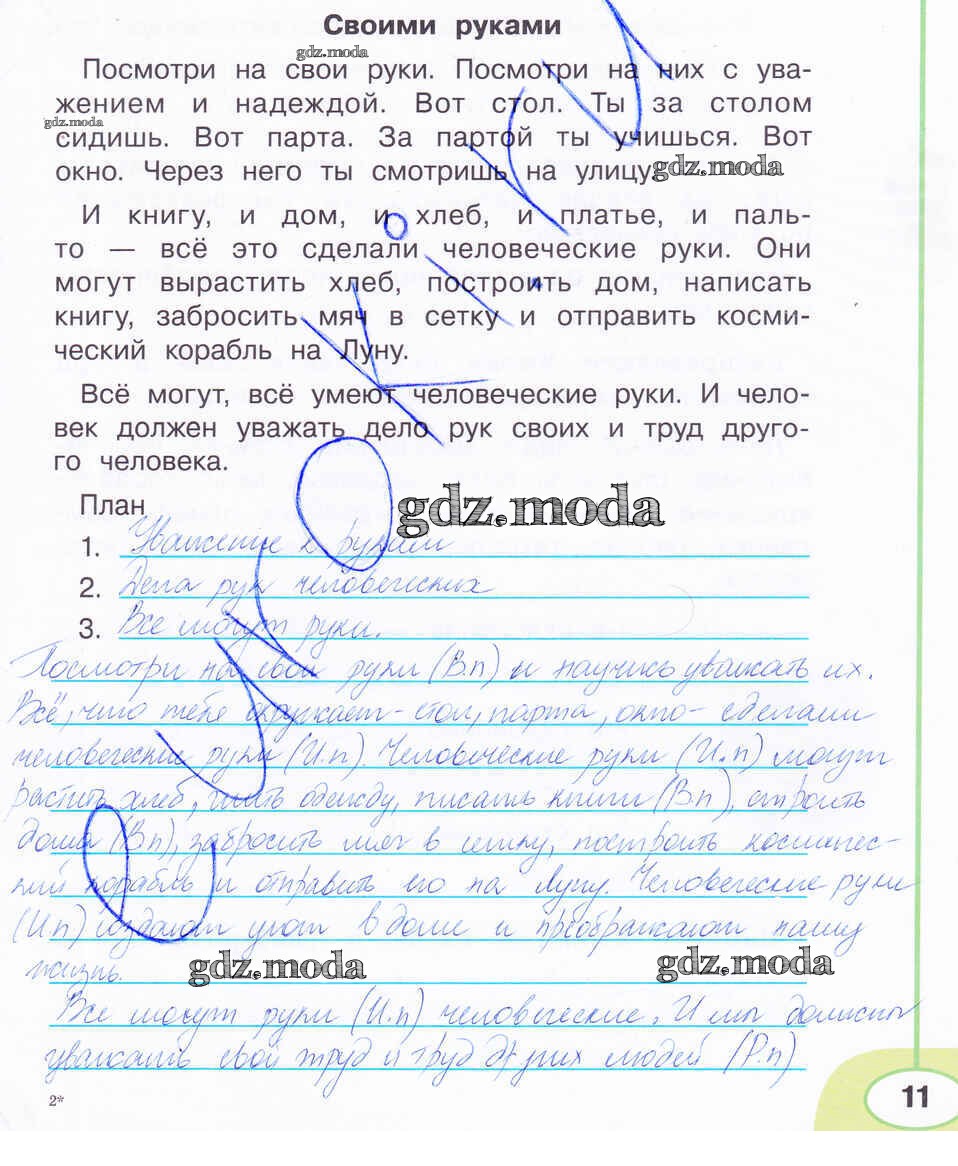 Своими руками
gdz.moda
Посмотри на свои руки. Посмотри на них с ува-
жением и надеждой. Вот стол. Ты за столом
gdz.moda
сидишь. Вот парта. За партой ты учишься. Вот
окно. Через него ты смотришь на улицу.
gdz.moda
И книгу, и дом, и хлеб, и платье, и паль-
то — всё это сделали человеческие руки. Они
могут вырастить хлеб, построить дом, написать
книгу, забросить мяч в сетку и отправить косми-
ческий корабль на Луну.
Всё могут, всё умеют человеческие руки. И чело-
век должен уважать дело рук своих и труд друго-
го человека.
План
gdz.moda
1. Уважение к рукам
2. Дела рук человеческих
3. Все могут руки.
Посмотри на свои руки (В.п) и научись уважать их.
Всё, что тебе окружает - стол, парта, окно - сделали
человеческие руки (И.п). Человеческие руки (И.п) могут
растить хлеб, шить одежду, писать книги (В.п), строить
дома (В.п), забросить мяч в сетку, построить космичес-
кий корабль и отправить его на Луну. Человеческие руки
(И.п) создают уют в доме и преображают нашу
жизнь.
gdz.moda
gdz.moda
Все могут руки (И.п) человеческие. И мы должны
уважать свой труд и труд других людей (Р.п)
2*
11